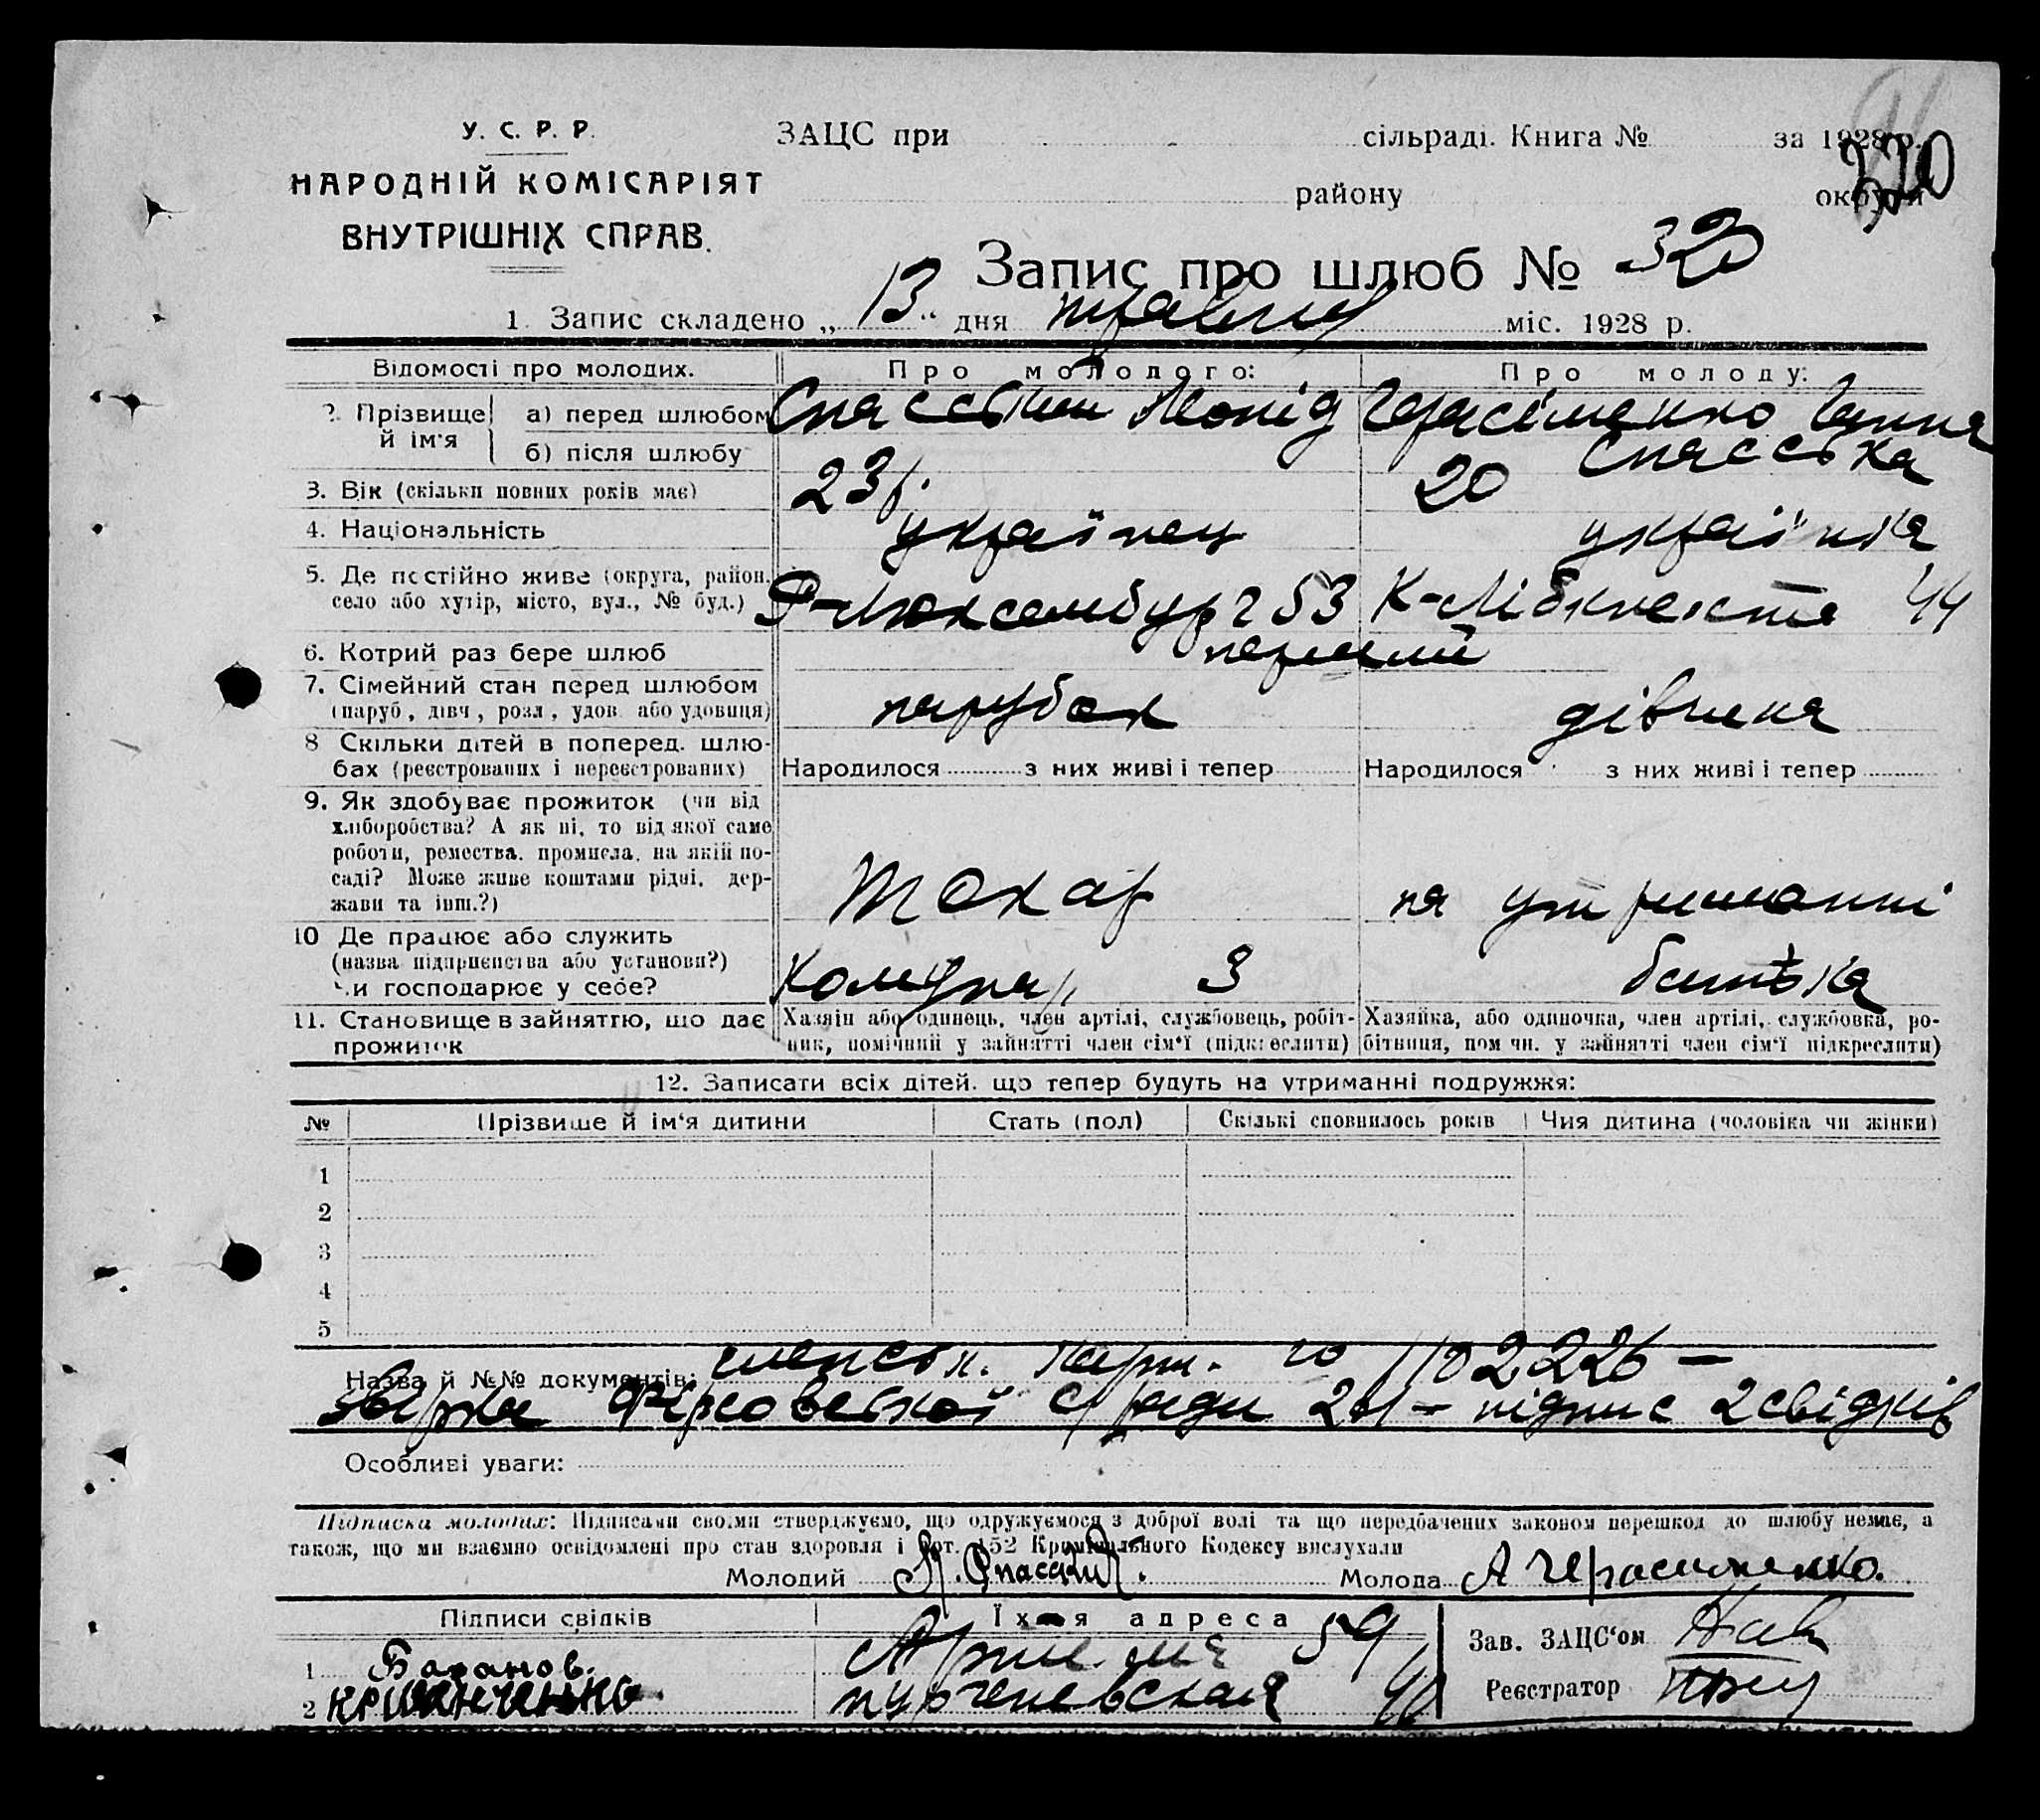 У. С. Р. Р.
НАРОДНІЙ КОМІСАРІЯТ
ВНУТРІШНІХ СПРАВ.
ЗАЦС при сільраді. Книга № за 1928 р.
району округи
320
Запис про шлюб № 320
1. Запис складено „13“ дня травня міс. 1928 р.
Відомості про молодих. Про молодого: Про молоду:
2. Прізвище й ім'я
а) перед шлюбом Спасський Леонід Герасіменко Ганна
б) після шлюбу Спасська
3. Вік (скільки повних років має) 23 р. 20
4. Національність українец українка
5. Де постійно живе (округа, район, Р-Люксембург 53 К-Лібкнехта 44
село або хутір, місто, вул., № буд.)
6. Котрий раз бере шлюб перший
7. Сімейний стан перед шлюбом парубок дівчина
(паруб., дівч., розл., удов. або удовиця)
8 Скільки дітей в поперед. шлю-
бах (реєстрованих і нереєстрованих) Народилося з них живі і тепер Народилося з них живі і тепер
9. Як здобуває прожиток (чи від
хліборобства? А як ні, то від якої саме
роботи, ремества, промисла, на якій по-
саді? Може живе коштами рідні, дер-
жави та інш.?) токар на утриманні
10 Де працює або служить батька
(назва підприємства або установи?) Комунар 3
чи господарює у себе?
11. Становище в зайняттю, що дає прожиток
Хазяін або одинець, член артілі, службовець, робіт-
ник, помічний у зайнятті член сім'ї (підкреслити)
Хазяйка, або одиночка, член артілі, службовка, ро-
бітниця, помічн. у зайнятті член сім'ї підкреслити)
12. Записати всіх дітей, що тепер будуть на утриманні подружжя:
№ Прізвише й ім'я дитини Стать (пол) Скількі сповнилось років Чия дитина (чоловіка чи жінки)
1
2
3
4
5
Назва й №№ документів: членськ. карт.
2 свідків
Особливі уваги:
Підписка молодих: Підписами своіми стверджуємо, що одружуємося з доброї волі та що передбачених законом перешкод до шлюбу немає, а
також, що ми взаємно освідомлені про стан здоровля і арт. 152 Кримінального Кодексу вислухали
Молодий Л. Спасский. Молода А Герасименко.
Підписи свідків Їхня адреса
1 Баранов. 59
2 40
Зав. ЗАЦС'ом
Реєстратор